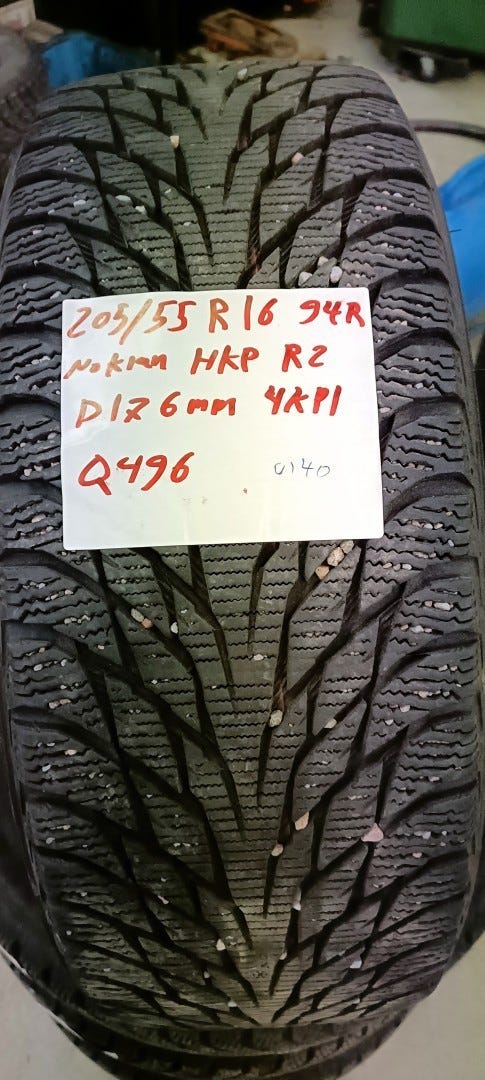 205/55 R16 94R
Nokian HKP R2
D17 6mm 4KPl
Q496 0140